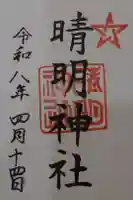 晴明神社
令和八年 四月十四日